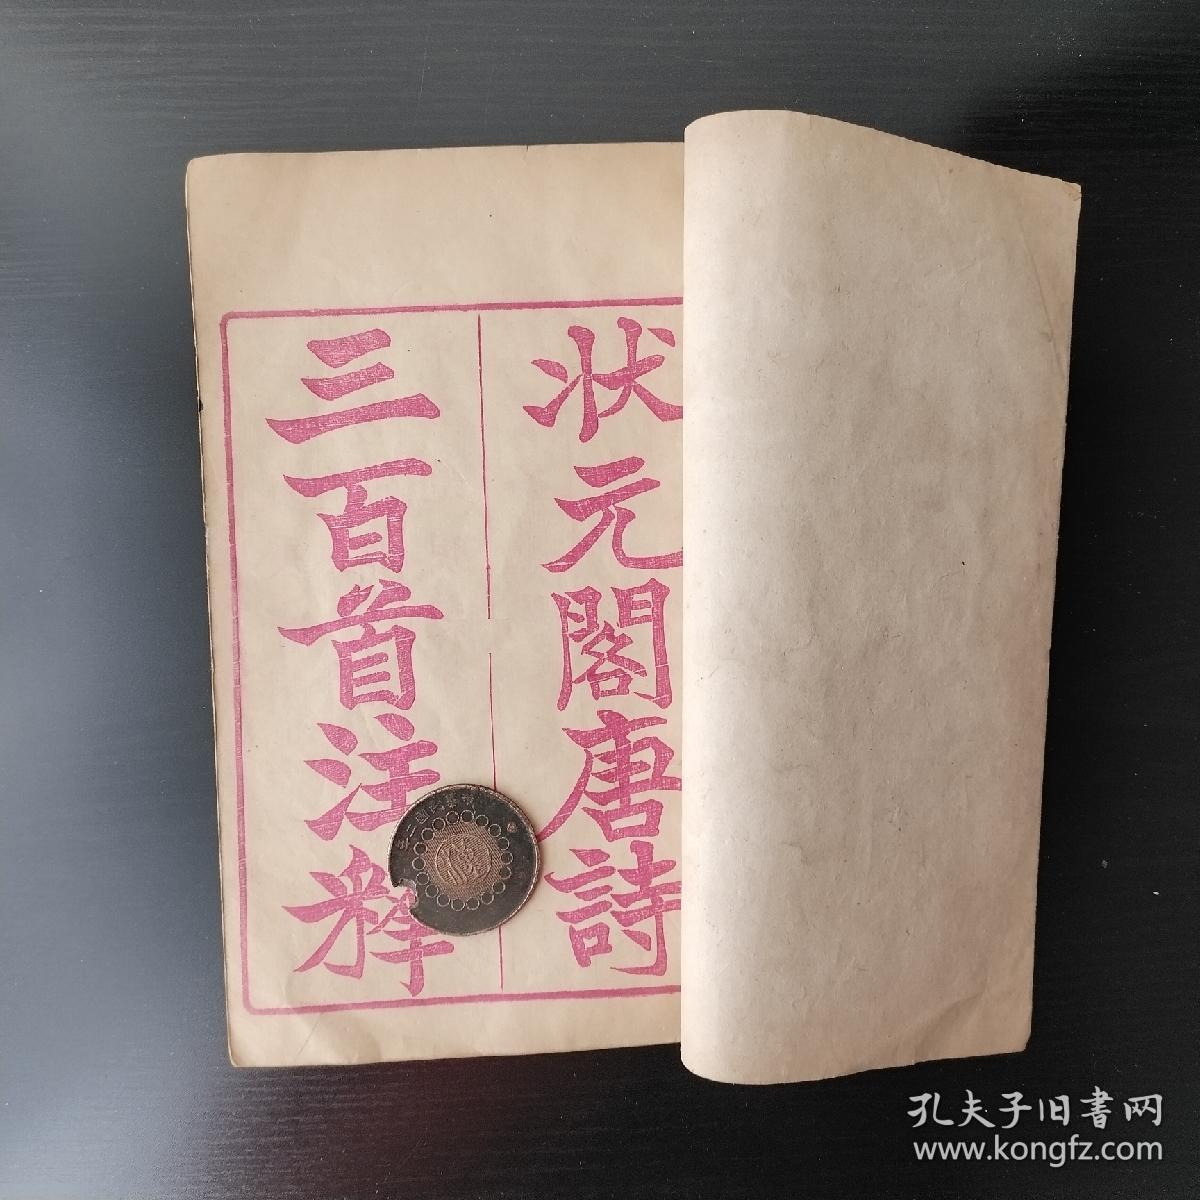 状元閣唐詩
三百首注释
孔夫子旧書网
www.kongfz.com